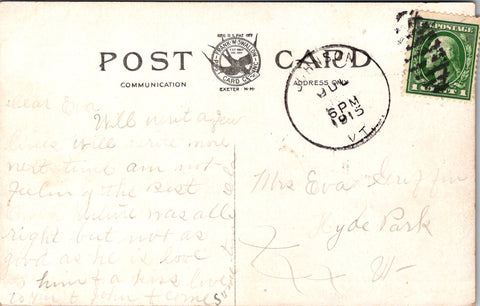 REG. U.S. PAT. OFF.
POST CARD
FRANK W. SWALLOW
POST CARD CO. INC.
EXETER - N.H.
COMMUNICATION
ADDRESS ON
JOHNSON
JUL
6 PM
1915
VT.
U.S. POSTAGE
1 CENT 1
Dear Eva
Will write a few
lines will write more
next time am not
feeling the Best I
was all
right but not as
good as he is love
to him & a kiss love
to you & John
Mrs Eva Griffin
Hyde Park
Vt